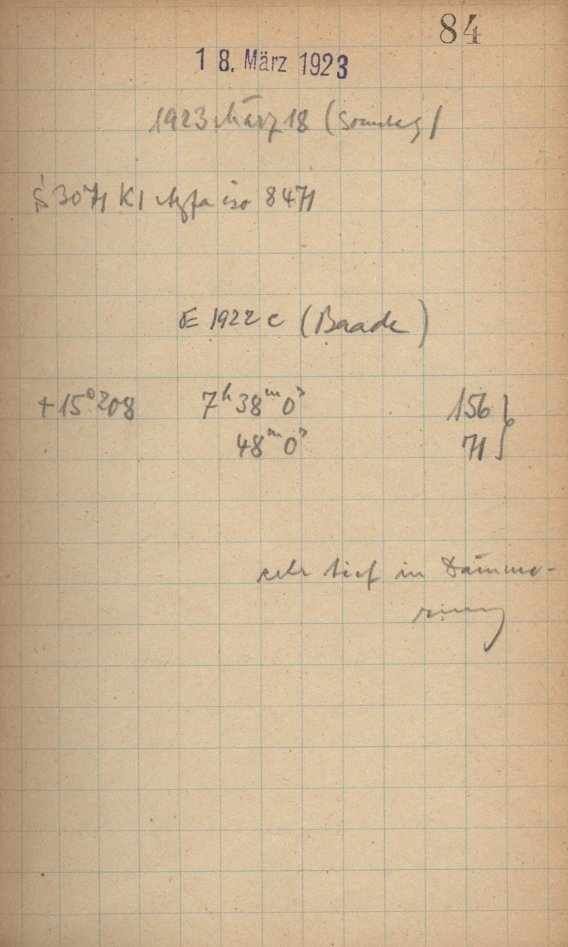 84
18. März 1923
1923 März 18 (Sonntag)
S 3071 K1 Agfa iso 8471
E 1922 c (Baade)
+15°208 7ʰ38ᵐ0ˢ 156 }
48ᵐ0ˢ 71 }
sehr tief in Dämme-
rung